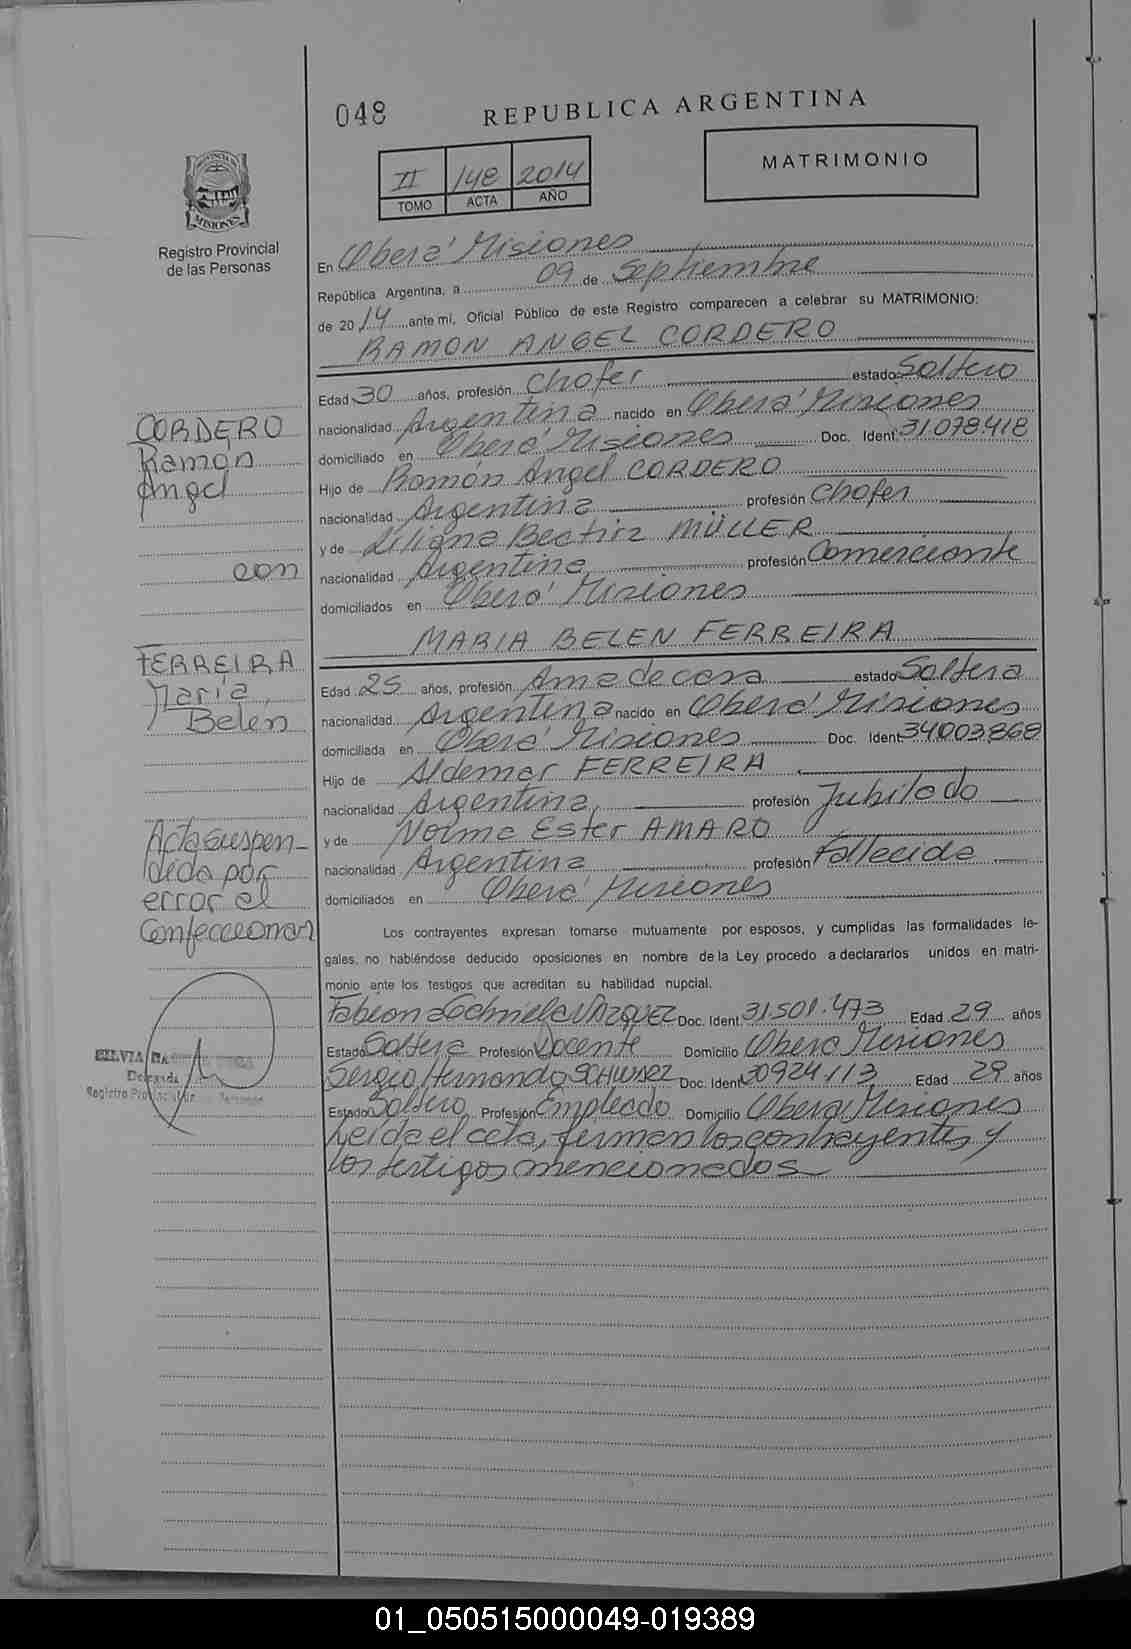 048
REPUBLICA ARGENTINA
II 148 2014
TOMO ACTA AÑO
MATRIMONIO
PROVINCIA DE MISIONES
Registro Provincial
de las Personas
En Oberá Misiones
República Argentina, a 09 de Septiembre
de 2014 ante mí, Oficial Público de este Registro comparecen a celebrar su MATRIMONIO:
RAMON ANGEL CORDERO
Edad 30 años, profesión Chofer estado Soltero
nacionalidad Argentina nacido en Oberá Misiones
domiciliado en Oberá Misiones Doc. Ident. 31.078.418
Hijo de Ramón Angel CORDERO
nacionalidad Argentina profesión Chofer
y de Liliana Beatriz MÜLLER
nacionalidad Argentina profesión Comerciante
domiciliados en Oberá Misiones
MARIA BELEN FERREIRA
Edad 25 años, profesión Ama de casa estado Soltera
nacionalidad Argentina nacido en Oberá Misiones
domiciliada en Oberá Misiones Doc. Ident. 34.003.868
Hijo de Aldemar FERREIRA
nacionalidad Argentina profesión Jubilado
y de Norma Ester AMARO
nacionalidad Argentina profesión Fallecida
domiciliados en Oberá Misiones
Los contrayentes expresan tomarse mutuamente por esposos, y cumplidas las formalidades le-
gales, no habiéndose deducido oposiciones en nombre de la Ley procedo a declararlos unidos en matri-
monio ante los testigos que acreditan su habilidad nupcial.
VAZQUEZ Doc. Ident. 31.501.473 Edad 29 años
Estado Soltera Profesión Docente Domicilio Oberá Misiones
Sergio Hernando SCHWARZ Doc. Ident. 30924113 Edad 29 años
Estado Soltero Profesión Empleado Domicilio Oberá Misiones
Leída el acta, firman los contrayentes y
los testigos mencionados
CORDERO
Ramón
Angel
con
FERREIRA
María
Belén
Acta suspen-
dida por
error al
Confeccionar
SILVIA
Delegada
Registro Provincial de las Personas
01_050515000049-019389